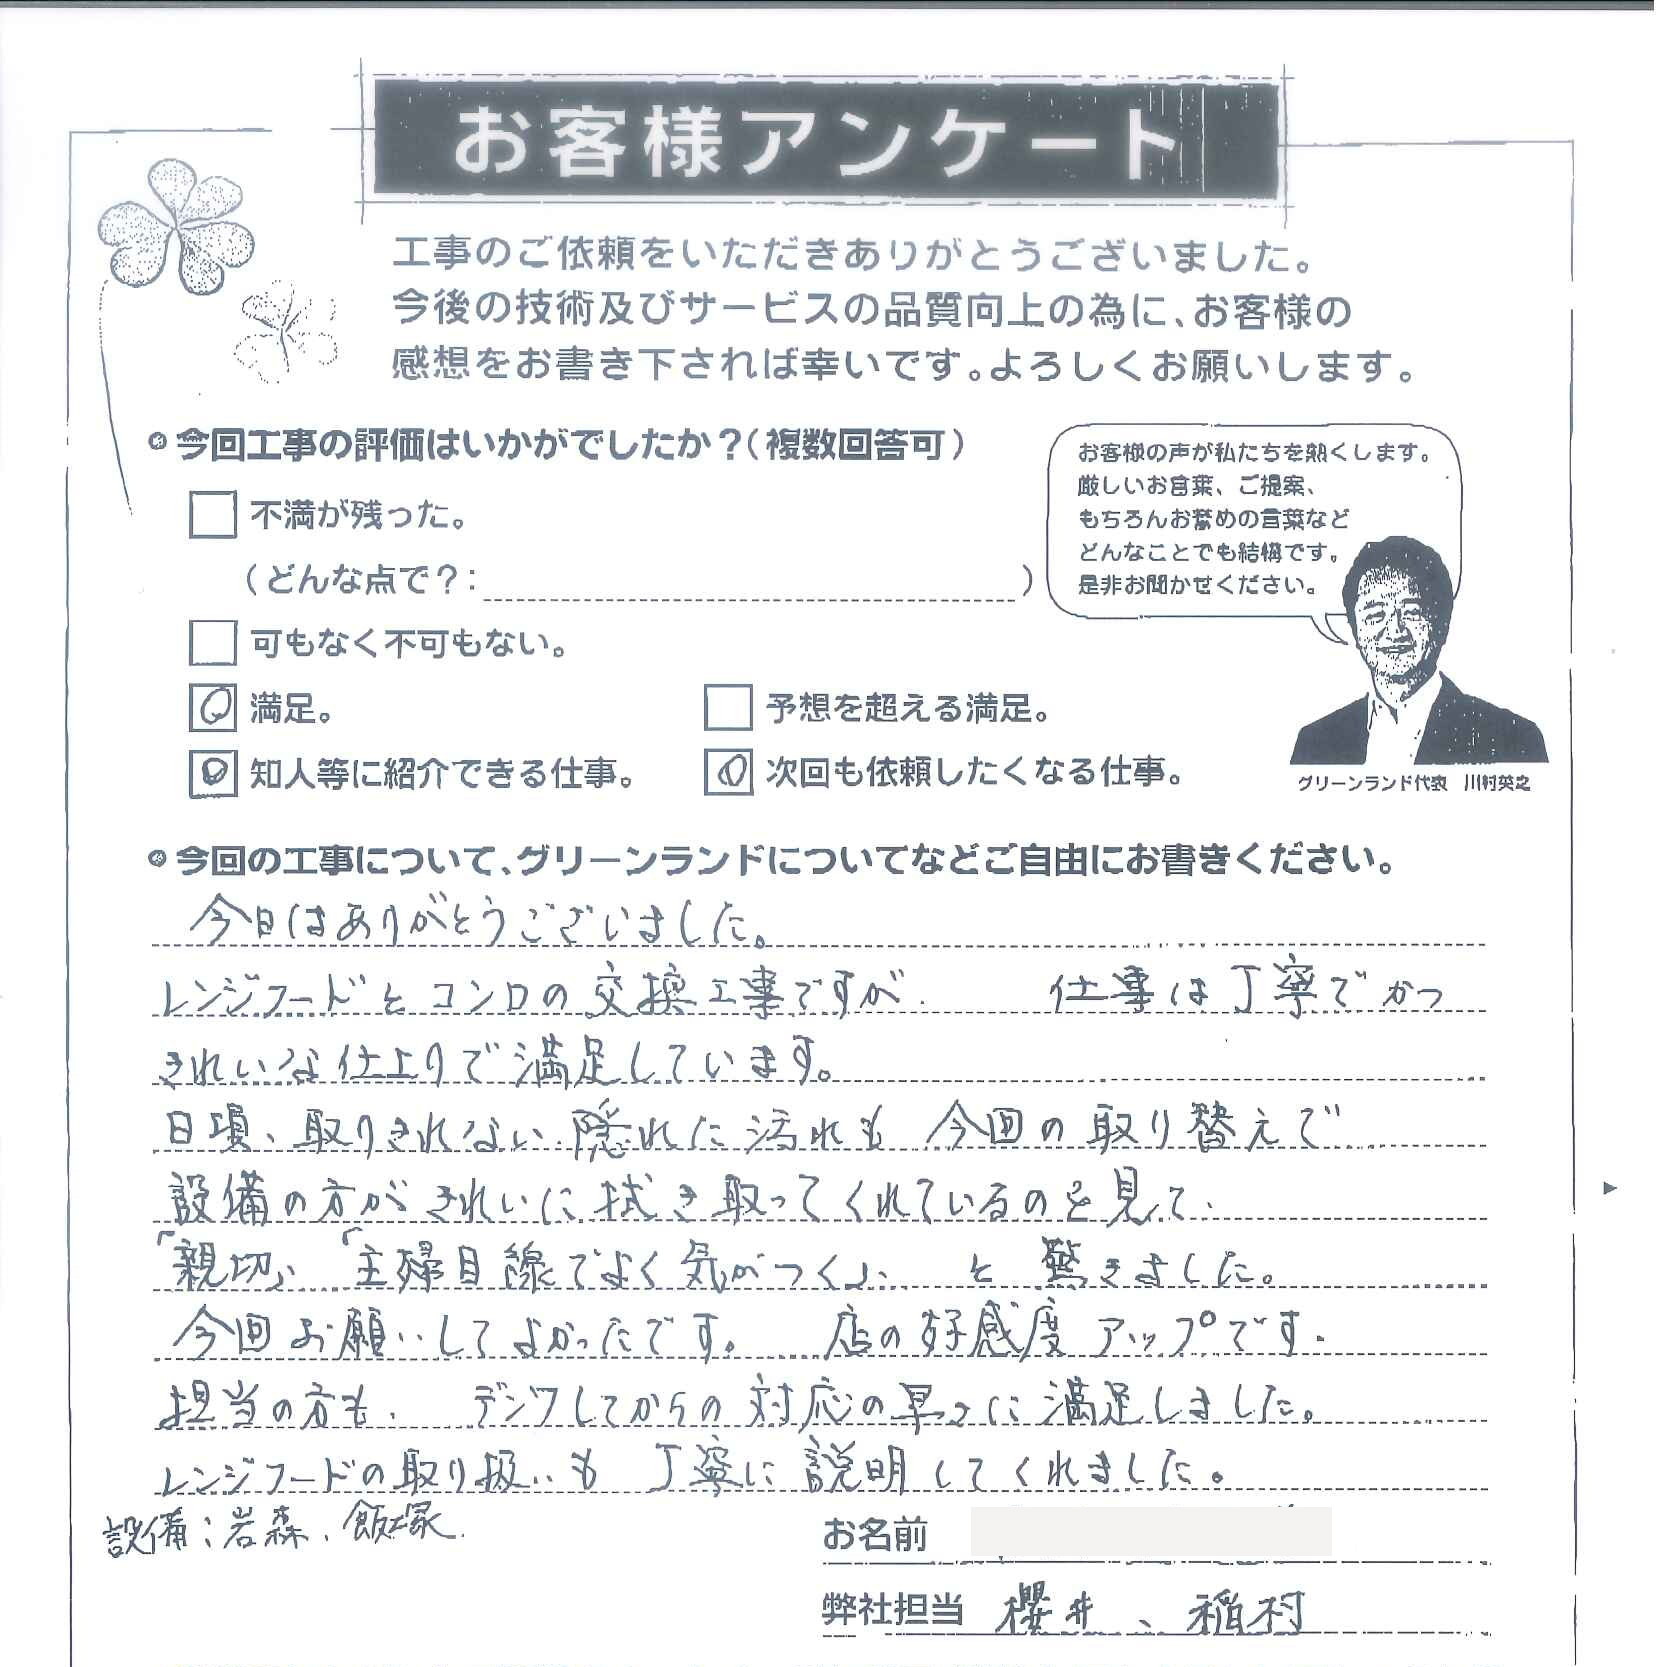 お客様アンケート
工事のご依頼をいただきありがとうございました。
今後の技術及びサービスの品質向上の為に、お客様の
感想をお書き下されば幸いです。よろしくお願いします。
今回工事の評価はいかがでしたか？(複数回答可)
お客様の声が私たちを熱くします。
厳しいお言葉、ご提案、
もちろんお誉めの言葉など
どんなことでも結構です。
是非お聞かせください。
不満が残った。
(どんな点で？: )
可もなく不可もない。
満足。
予想を超える満足。
知人等に紹介できる仕事。
次回も依頼したくなる仕事。
グリーンランド代表 川村英之
今回の工事について、グリーンランドについてなどご自由にお書きください。
今日はありがとうございました。
レンジフードとコンロの交換工事ですが、 仕事は丁寧でかつ
きれいな仕上りで満足しています。
日頃、取りきれない隠れた汚れも 今回の取り替えで
設備の方がきれいに拭き取ってくれているのを見て、
「親切」「主婦目線でよく気がつく」、 と 驚きました。
今回お願いしてよかったです。 店の好感度アップです。
担当の方も、 してからの対応の早さに満足しました。
レンジフードの取り扱いも 丁寧に説明してくれました。
設備：岩森、飯塚
お名前
弊社担当 櫻井、稲村